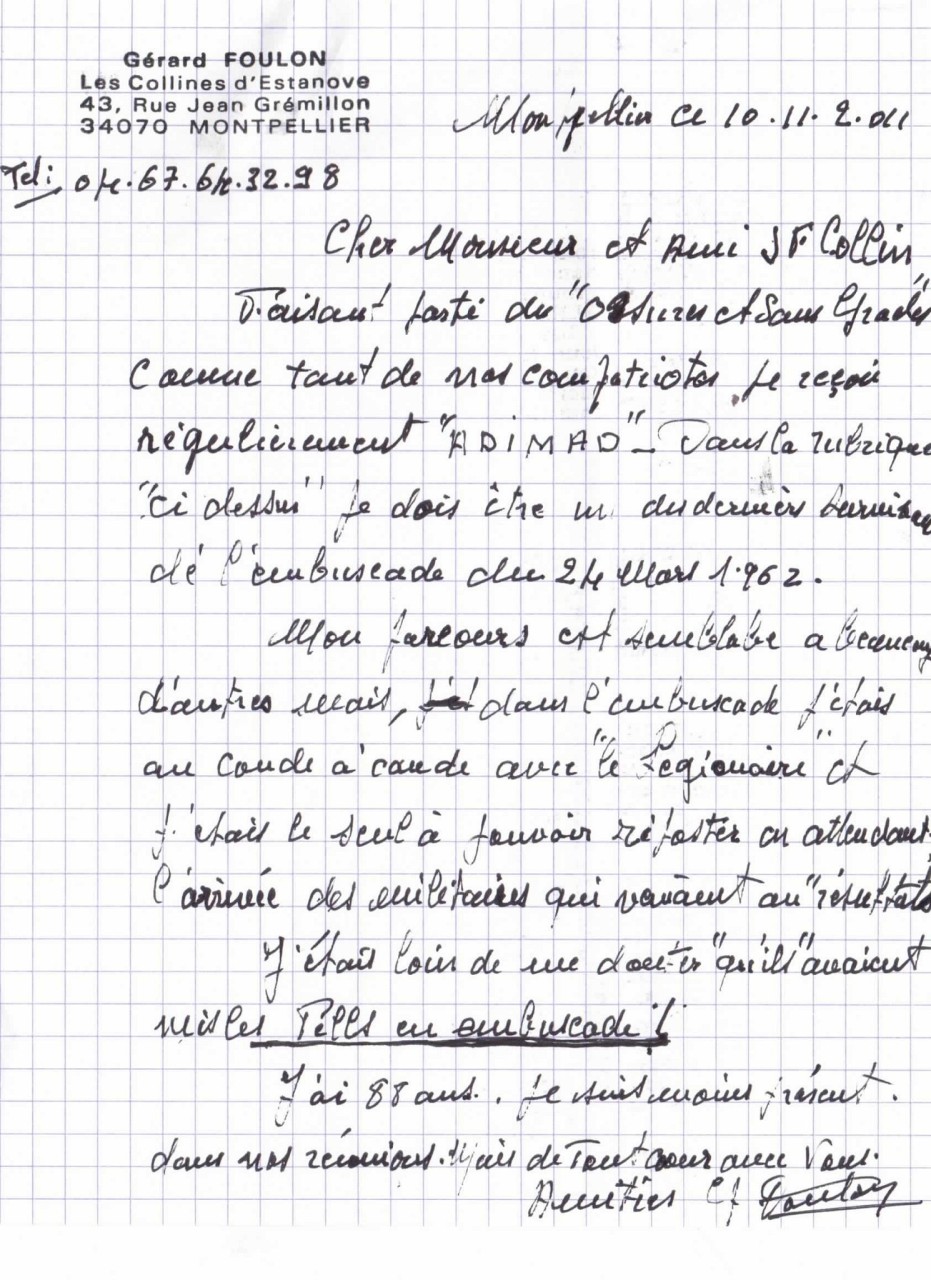 Gérard FOULON
Les Collines d'Estanove
43, Rue Jean Grémillon
34070 MONTPELLIER
Montpellier ce 10.11.2.011
Tel: 04.67.64.32.98
Cher Monsieur et Ami J F Collin
Faisant parti du "Obscures et Sans Grades"
Comme tant de nos compatriotes, je reçoi
régulièrement "ADIMAD" _ Dans la rubrique
"ci dessus" je dois être un des derniers
dé l'embuscade du 24 Mars 1.962.
Mon parcours est semblabe a beaucoup
d'autres mais, dans l'embuscade j'étais
au coude à coude avec "le Légionaire" et
j'étais le seul à pouvoir riposter en attendant
l'arrivée des militaires qui venaient au "résultats
J'étais loin de me douter "qu'ils" avaient
mis les Tells en embuscade !
J'ai 88 ans. . je suis moins présent .
dans nos réunions. Mais de Tout cœur avec Vous.
Amitiés Foulon